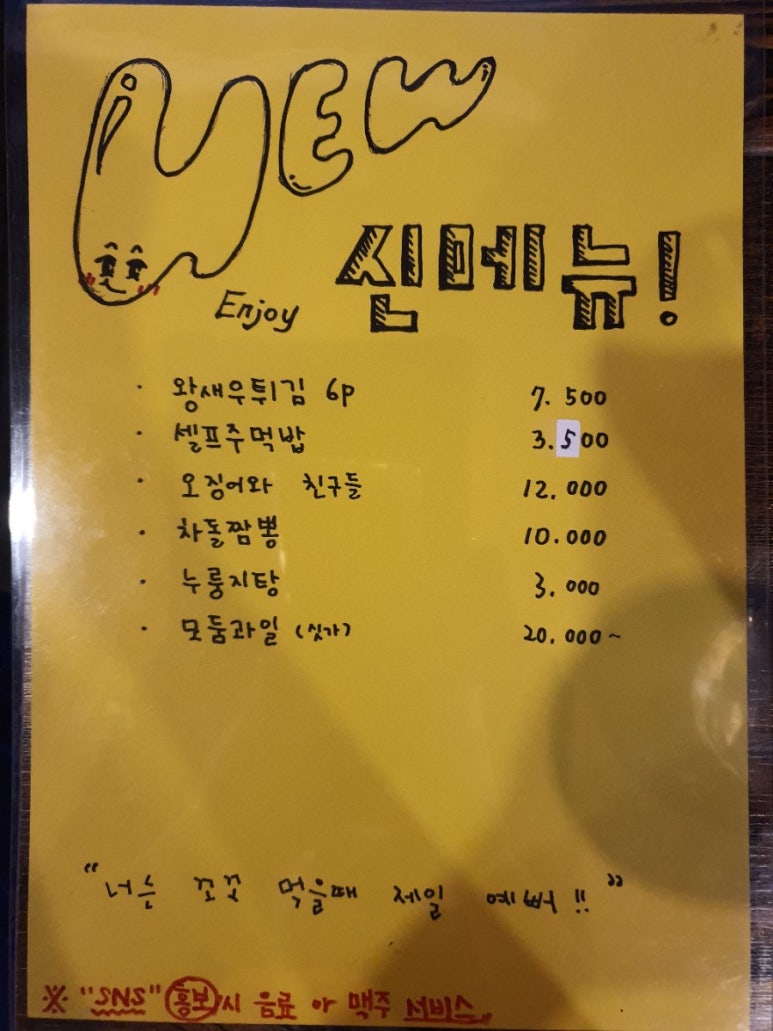 NEW
Enjoy 신메뉴!
· 왕새우튀김 6P 7.500
· 셀프주먹밥 3.500
· 오징어와 친구들 12.000
· 차돌짬뽕 10.000
· 누룽지탕 3.000
· 모둠과일 (싯가) 20.000~
"너는 꼬꼬 먹을때 제일 예뻐!!"
※ "SNS" 홍보시 음료 아 맥주 서비스